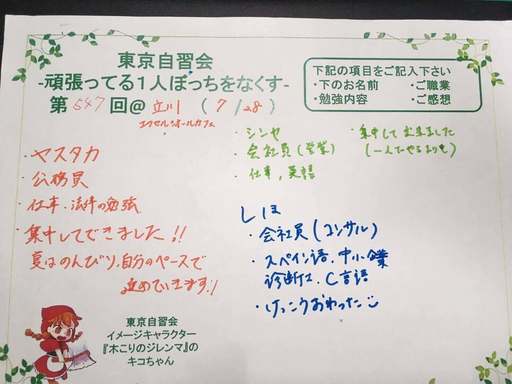 東京自習会
-頑張ってる１人ぼっちをなくす-
第547回@ 立川 (7/28)
エクセルシオールカフェ
下記の項目をご記入下さい
・下のお名前 ・ご職業
・勉強内容 ・ご感想
・ヤスタカ
・公務員
・仕事・法律の勉強
・集中してできました!!
夏はのんびり、自分のペースで
進めていきます!!
・シンヤ
・会社員(営業)
・仕事、英語
・集中して出来ました
(一人でやるよりも)
しほ
・会社員(コンサル)
・スペイン語、中小企業
診断士、C言語
・けっこうおわった
東京自習会
イメージキャラクター
『木こりのジレンマ』の
キコちゃん